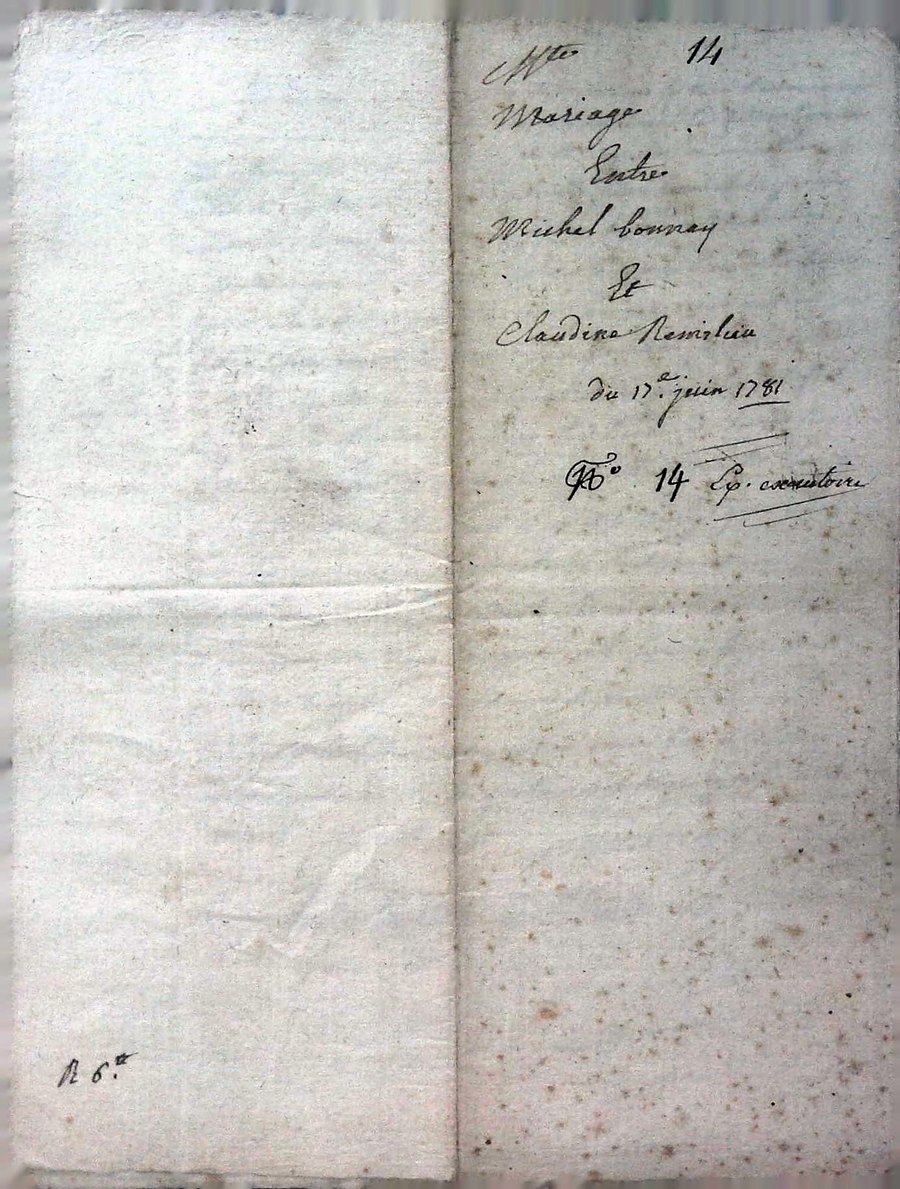 14
Mariage
Entre
Michel bonnay
Et
Claudine Remilieu
du 17e. juin 1781
No. 14 Exp. executoire
R 6.